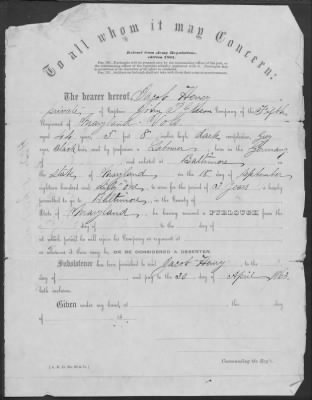 To all whom it may Concern:
Extract from Army Regulations,
edition 1861.
The bearer hereof, Jacob Henry
private, of Captain John Company of the Fifth
Regiment of Maryland Vols
aged 44 years, 5 feet 8 inches high, dark complexion, Grey
eyes, Black hair, and by profession a Laborer, born in the Germany
, and enlisted at Baltimore
in the State of Maryland on the 18 day of September
eighteen hundred and sixty One, to serve for the period of 3 Years, is hereby
permitted to go to Baltimore, in the County of
State of Maryland, he having received a FURLOUGH from the
day of to the day of
at which period he will rejoin his Company or regiment at
or wherever it then may be, OR BE CONSIDERED A DESERTER.
Subsistence has been furnished to said Jacob Henry to the
day of , and pay to the 30 day of April 1863,
both inclusive.
Given under my hand, at , this day
of 18
Commanding the Reg't.